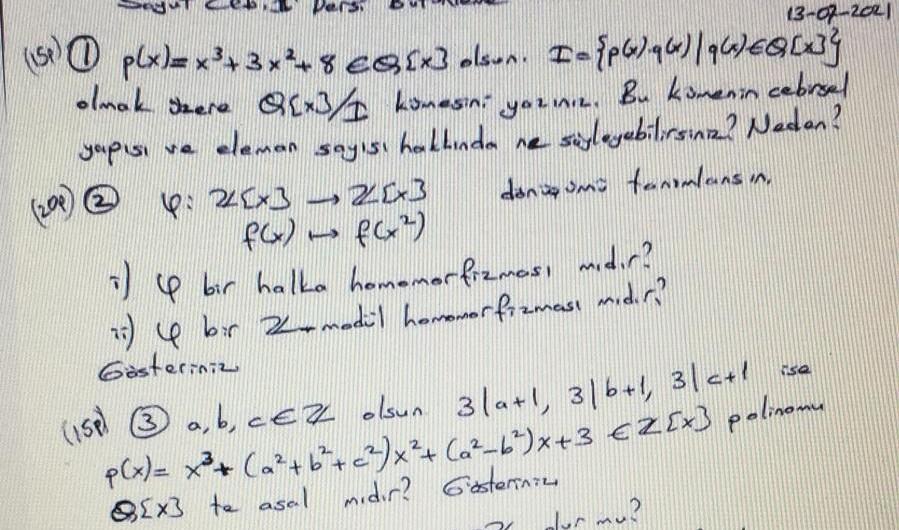 Soyut Ceb. I Dersi Bütünleme
13-07-2021
(15p) ① p(x)=x³+3x²+8 ∈ Q[x] olsun. I={p(x).q(x)|q(x)∈Q[x]}
olmak üzere Q[x]/I kümesini yazınız. Bu kümenin cebirsel
yapısı ve eleman sayısı hakkında ne söyleyebilirsiniz? Neden?
(20p) ② φ: Z[x] → Z[x] dönüşümü tanımlansın.
f(x) ↦ f(x²)
i) φ bir halka homomorfizması mıdır?
ii) φ bir Z-modül homomorfizması mıdır?
Gösteriniz
(15p) ③ a,b,c∈Z olsun 3|a+1, 3|b+1, 3|c+1 ise
p(x)= x³+(a²+b²+c²)x²+(a²-b²)x+3 ∈Z[x] polinomu
Q[x] te asal mıdır? Gösteriniz
olur mu?